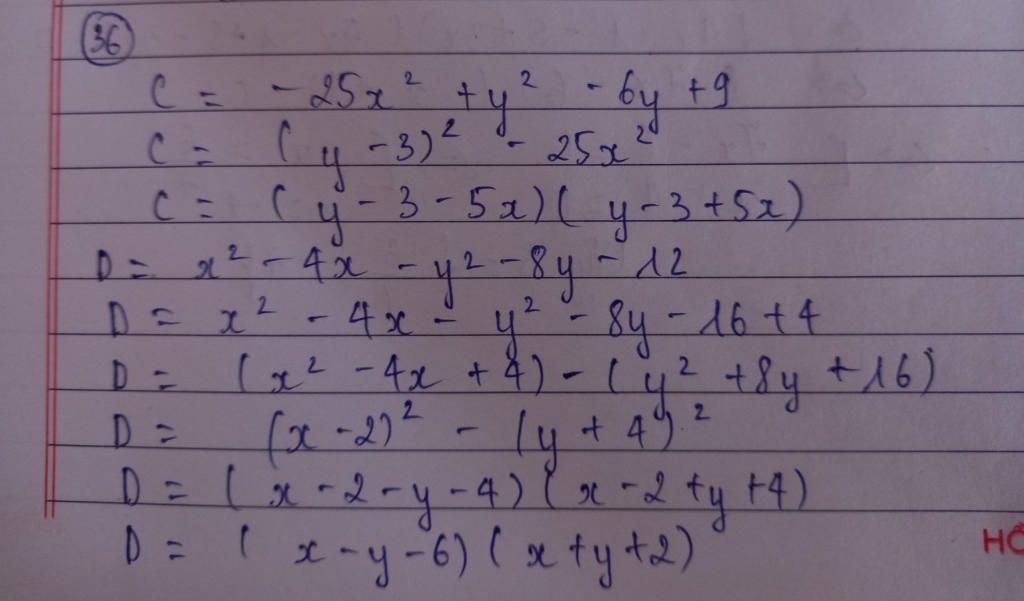 36
C = - 25x² + y² - 6y + 9
C = ( y - 3)² - 25x²
C = ( y - 3 - 5x) ( y - 3 + 5x)
D = x² - 4x - y² - 8y - 12
D = x² - 4x - y² - 8y - 16 + 4
D = ( x² - 4x + 4) - ( y² + 8y + 16)
D = (x - 2)² - (y + 4)²
D = ( x - 2 - y - 4) ( x - 2 + y + 4)
D = ( x - y - 6) ( x + y + 2)